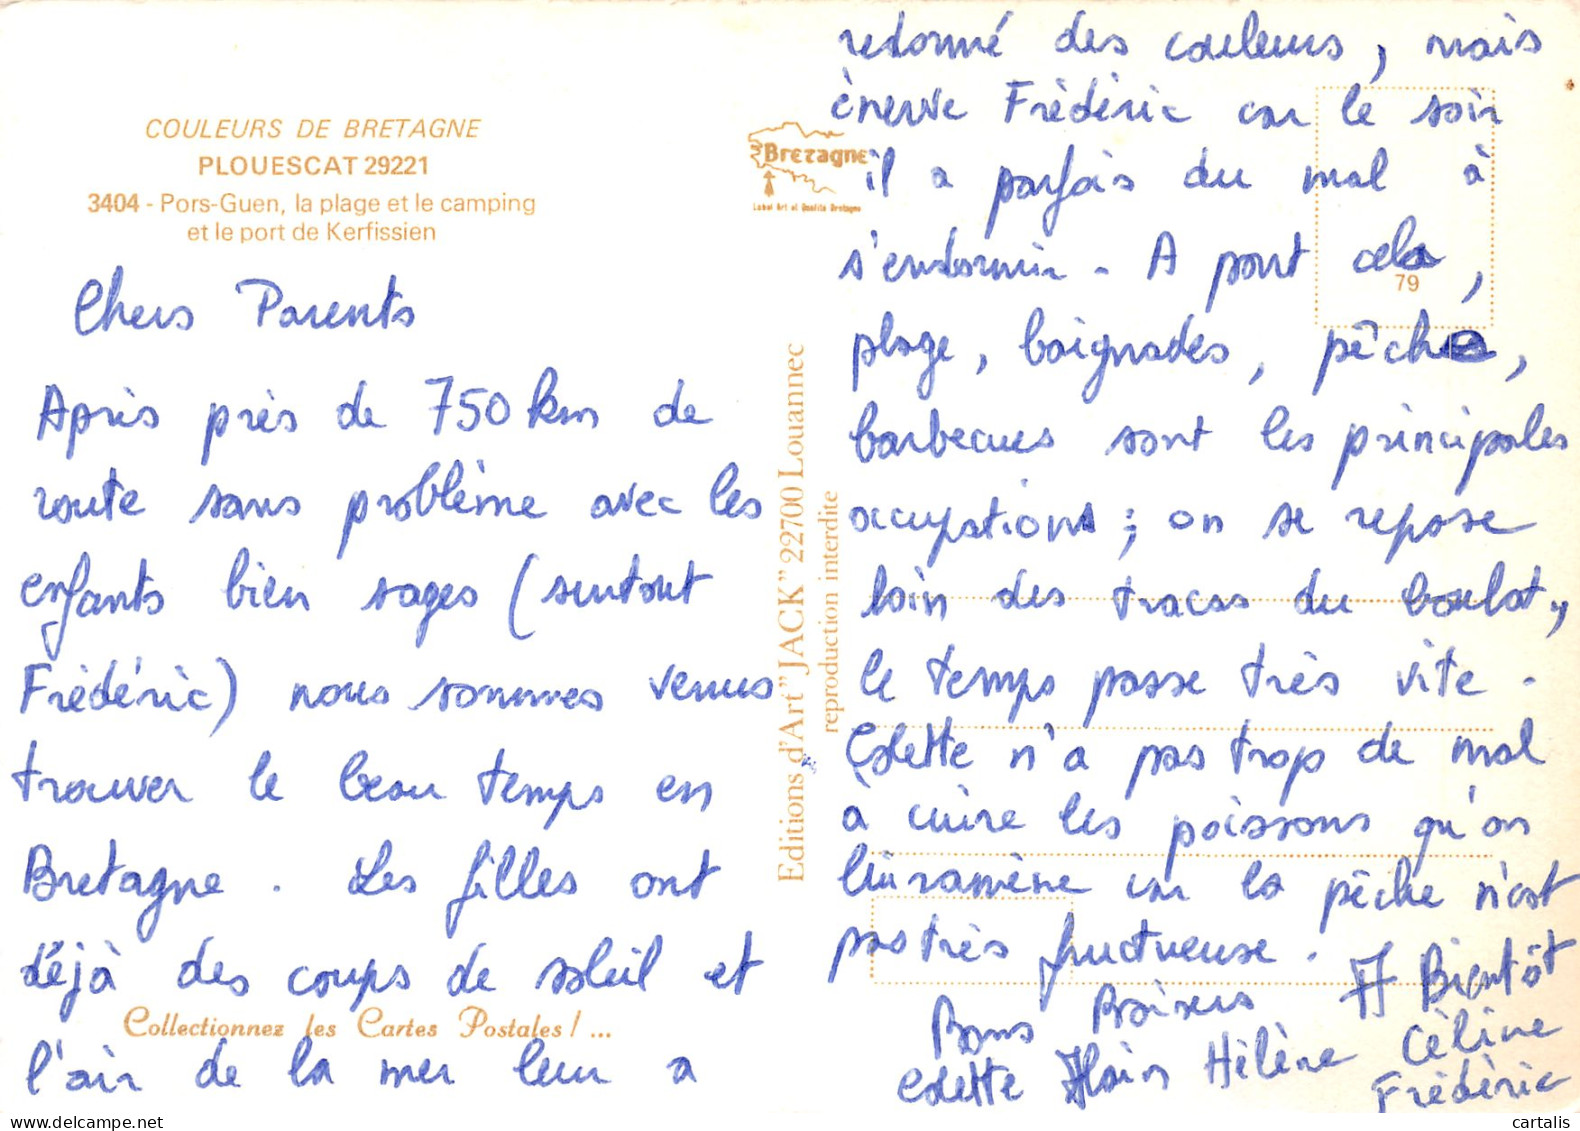 COULEURS DE BRETAGNE
PLOUESCAT 29221
3404 - Pors-Guen, la plage et le camping
et le port de Kerfissien
Chers Parents
Après près de 750 km de
route sans problème avec les
enfants bien sages (surtout
Frédéric) nous sommes venus
trouver le beau temps en
Bretagne . Les filles ont
déjà des coups de soleil et
Collectionnez les Cartes Postales ! ...
l'air de la mer leur a
Bretagne
Label Art et Qualité Bretagne
Editions d'Art "JACK" 22700 Louannec
reproduction interdite
redonné des couleurs, mais
énerve Frédéric car le soir
il a parfois du mal à
s'endormir - A part cela,
79
plage, baignades, pêche,
barbecues sont les principales
occupations ; on se repose
loin des tracas du boulot,,
le temps passe très vite .
Colette n'a pas trop de mal
à cuire les poissons qu'on
lui ramène car la pêche n'est
pas très fructueuse .
Bons Baisers A Bientôt
Colette Alain Hélène Céline
Frédéric
cartalis